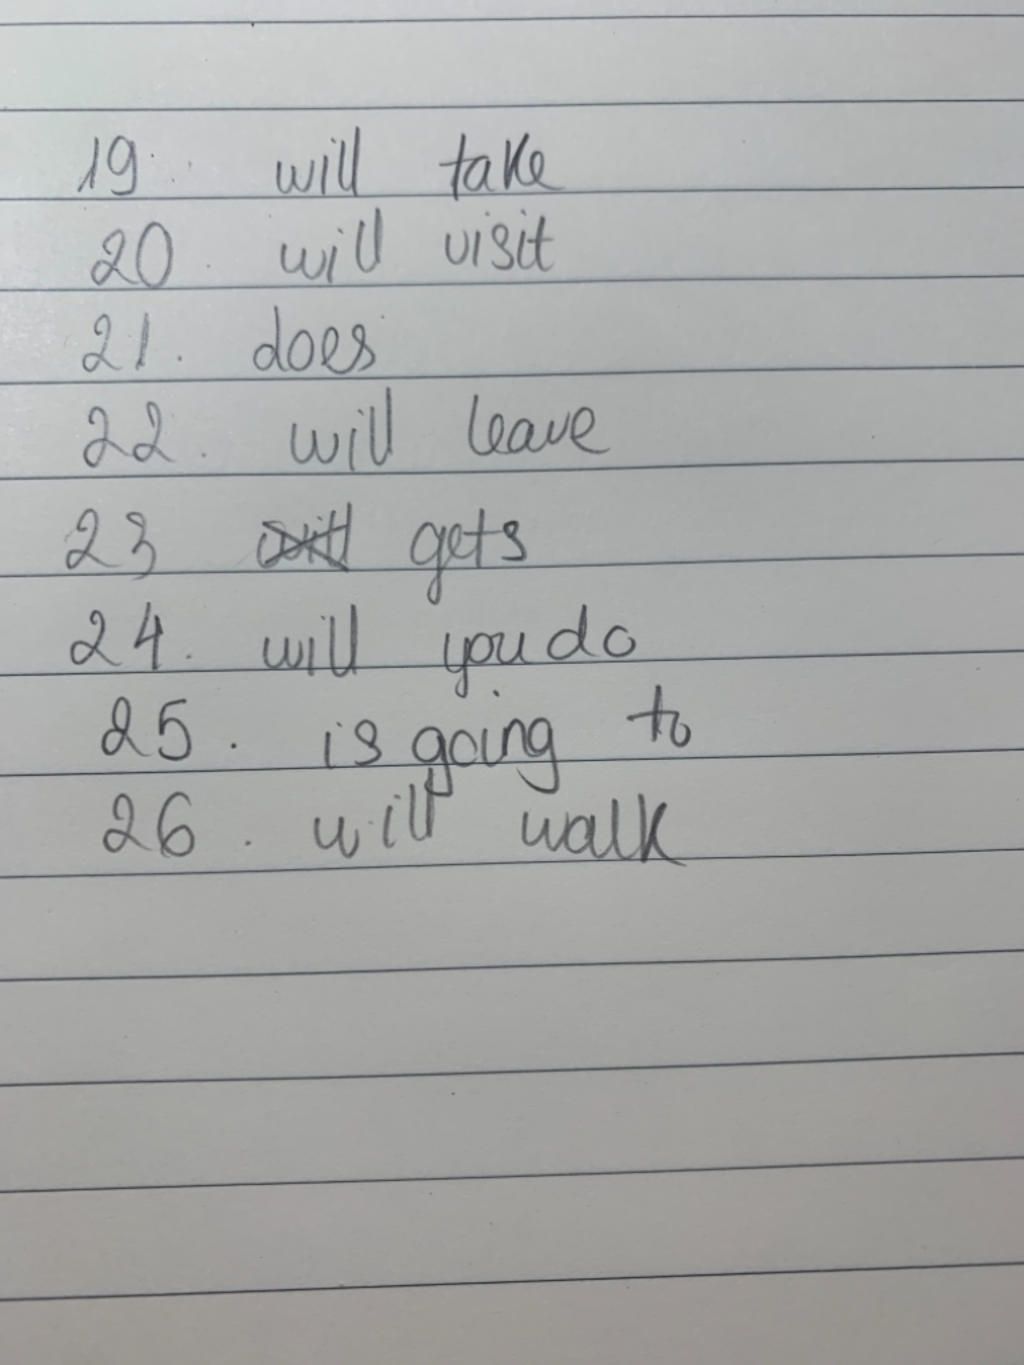 19. will take
20. will visit
21. does
22. will leave
23 will gets
24. will you do
25. is going to
26. will walk